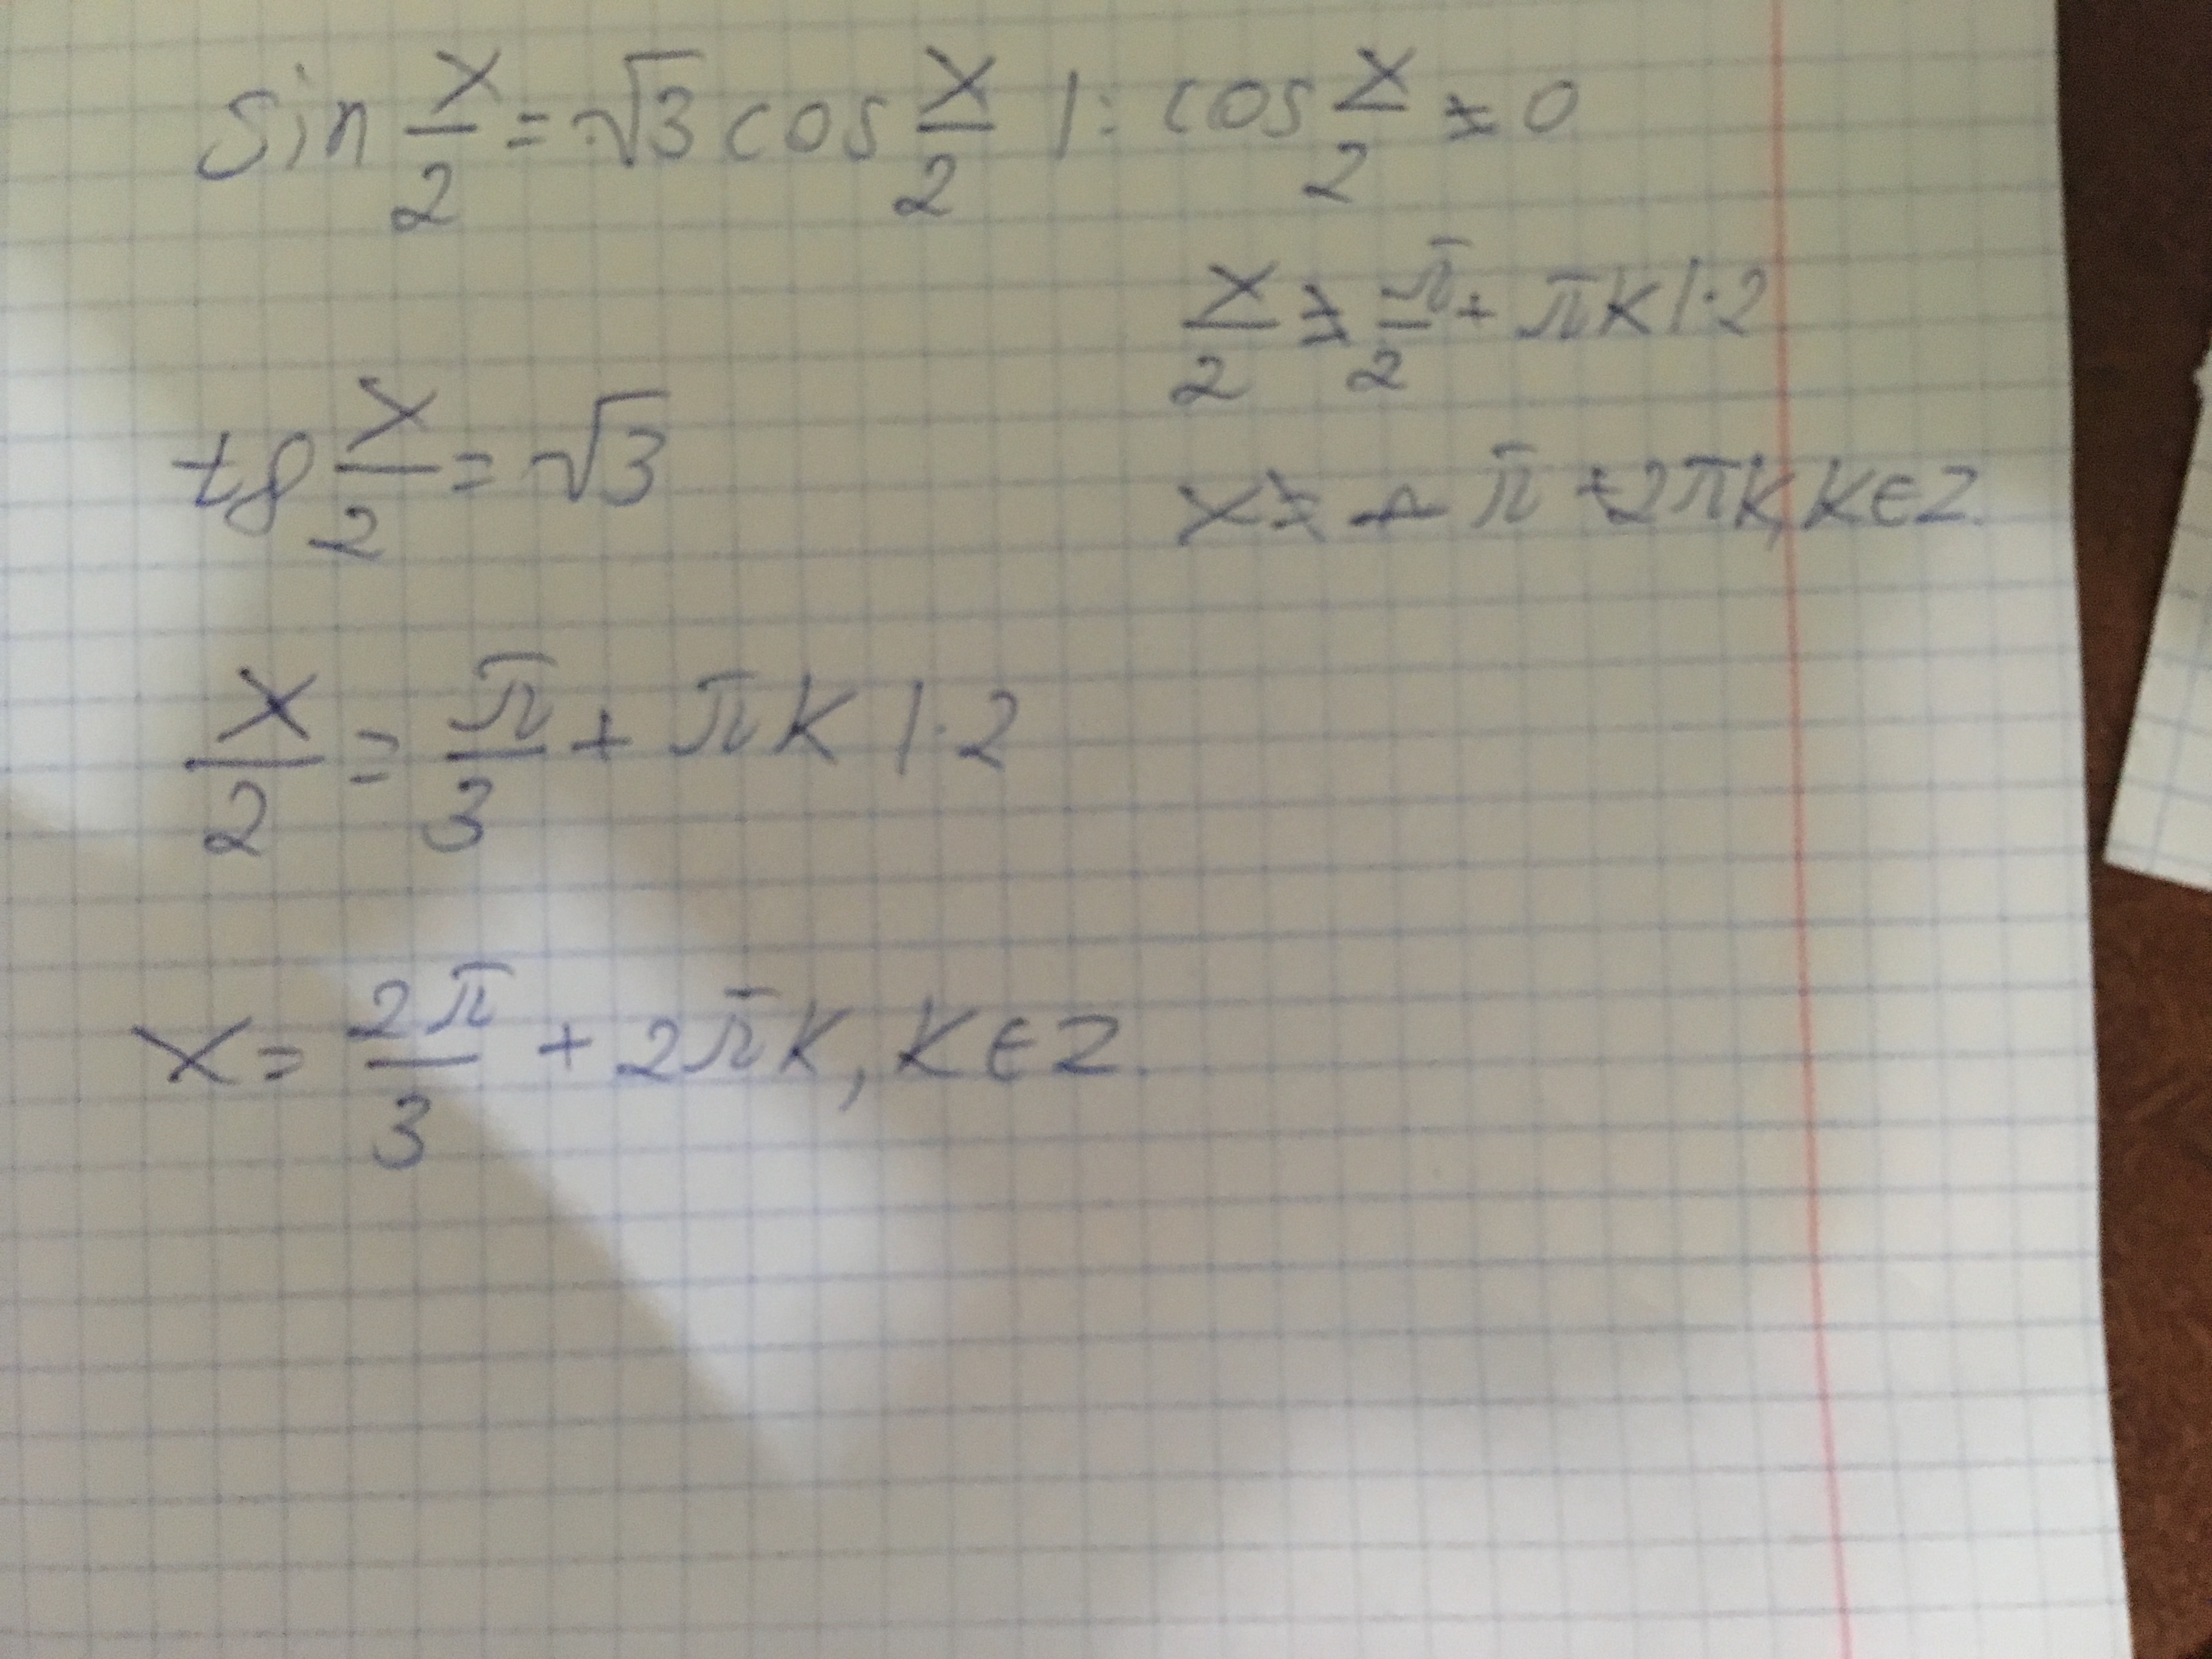 sin x/2 = √3 cos x/2 |: cos x/2 ≠ 0
x/2 ≠ π/2 + πk |·2
tg x/2 = √3
x ≠ π + 2πk, k ∈ Z.
x/2 = π/3 + πk |·2
x = 2π/3 + 2πk, k ∈ Z.